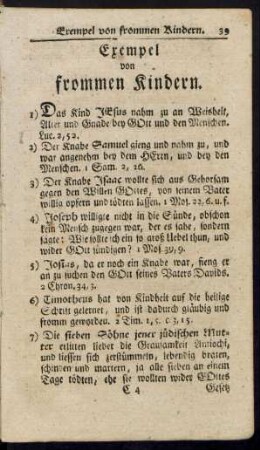 Exempel von frommen Kindern. 39
Exempel
von
frommen Kindern.
1) Das Kind JEsus nahm zu an Weisheit,
Alter und Gnade bey GOtt und den Menschen.
Luc. 2, 52.
2) Der Knabe Samuel gieng und nahm zu, und
war angenehm bey dem HErrn, und bey den
Menschen. 1 Sam. 2, 26.
3) Der Knabe Isaac wollte sich aus Gehorsam
gegen den Willen GOttes, von seinem Vater
willig opfern und tödten lassen. 1 Mos. 22, 6. u. f.
4) Joseph willigte nicht in die Sünde, obschon
kein Mensch zugegen war, der es sahe, sondern
sagte: Wie sollte ich ein so groß Uebel thun, und
wider GOtt sündigen? 1 Mos. 39, 9.
5) Josias, da er noch ein Knabe war, fieng er
an zu suchen den GOtt seines Vaters Davids.
2 Chron. 34, 3.
6) Timotheus hat von Kindheit auf die heilige
Schrift gelernet, und ist dadurch gläubig und
fromm geworden. 2 Tim. 1, 5. c. 3, 15.
7) Die sieben Söhne jener jüdischen Mut-
ter erlitten lieber die Grausamkeit Antiochi,
und liessen sich zerstümmeln, lebendig braten,
schinden und martern, ja alle sieben an einem
Tage tödten, ehe sie wollten wider GOttes
C 4 Gesetz